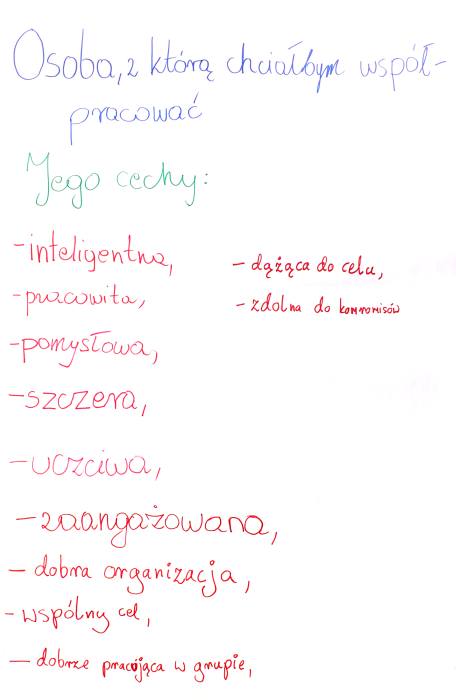 Osoba, z którą chciałbym współ-
pracować
Jego cechy:
- inteligentna,
- pracowita,
- pomysłowa,
- szczera,
- uczciwa,
- zaangażowana,
- dobra organizacja,
- wspólny cel,
- dobrze pracująca w grupie,
- dążąca do celu,
- zdolna do kompromisów